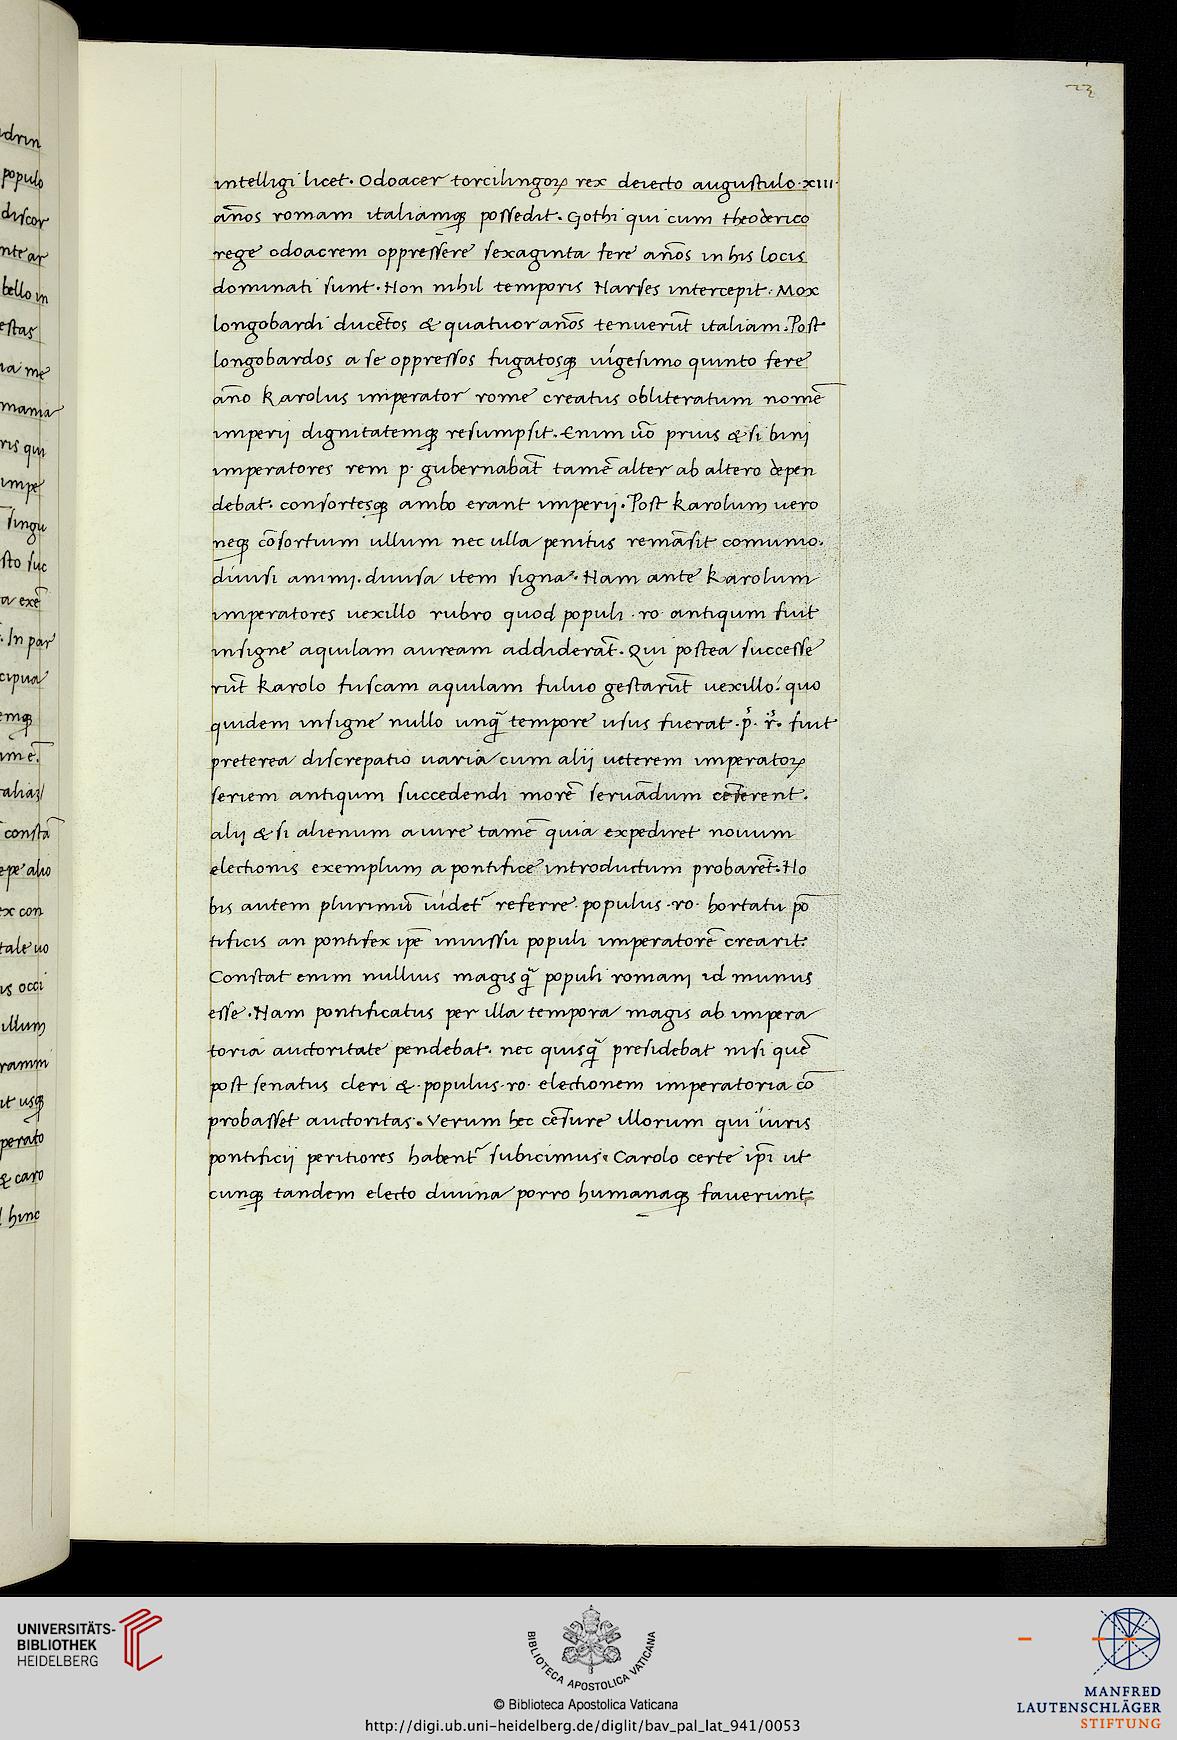 23
intelligi licet. Odoacer torcilingoꝝ rex deiecto augustulo·xiii·
an̄os romam italiamqꝫ possedit. Gothi qui cum theoderico
rege odoacrem oppressere sexaginta fere an̄os in his locis
dominati sunt. Non nihil temporis Narses intercepit: Mox
longobardi ducētos & quatuor an̄os tenuerūt italiam. Post
longobardos a se oppressos fugatosqꝫ uigesimo quinto fere
an̄o Karolus imperator rome creatus obliteratum nomē
imperij dignitatemqꝫ resumpsit. Enim uō prius & si bini
imperatores rem p· gubernabāt tamē alter ab altero depen
debat. consortesqꝫ ambo erant imperij. Post Karolum uero
neqꝫ cōsortium ullum nec ulla penitus remāsit comunio.
diuisi animi. diuisa item signa. Nam ante Karolum
imperatores uexillo rubro quod populi ·ro· antiqum fuit
insigne aquilam auream addiderāt. Qui postea successe
rūt Karolo fuscam aquilam fuluo gestarūt uexillo: quo
quidem insigne nullo unq̄ tempore usus fuerat ·p̓· r̓. fuit
preterea discrepatio uaria cum alij ueterem imperatoꝝ
seriem antiqum succedendi morē seruādum cēserent.
alij & si alienum a iure tamē quia expediret nouum
electionis exemplum a pontifice introductum probarēt. No
bis autem plurimū uidet᷑ referre populus ·ro· hortatu pō
tificis an pontifex ip̄e iniussu populi imperatorē crearit.
Constat enim nullius magis q̄ populi romani id munus
esse. Nam pontificatus per illa tempora magis ab impera
toria auctoritate pendebat. nec quisq̄ presidebat nisi quē
post senatus cleri & populus ·ro· electionem imperatoria cō
probasset auctoritas. Verum hec cēsure illorum qui iuris
pontificij peritiores habent᷑ subicimus. Carolo certe ip̄i ut
cunqꝫ tandem electo diuina porro humanaqꝫ fauerunt
drin
populo
discor
nte ar
bello in
estas
ia me
mania
ris qui
impe
singu
sto suc
a exē
. In par
cipua
emqꝫ
ime.
taliaꝫ
constā
epe alio
ex con
tale uo
is occi
illum
rammi
it usqꝫ
perato
& caro
hinc
UNIVERSITÄTS-
BIBLIOTHEK
HEIDELBERG
BIBLIOTECA APOSTOLICA VATICANA
© Biblioteca Apostolica Vaticana
http://digi.ub.uni-heidelberg.de/diglit/bav_pal_lat_941/0053
MANFRED
LAUTENSCHLÄGER
STIFTUNG